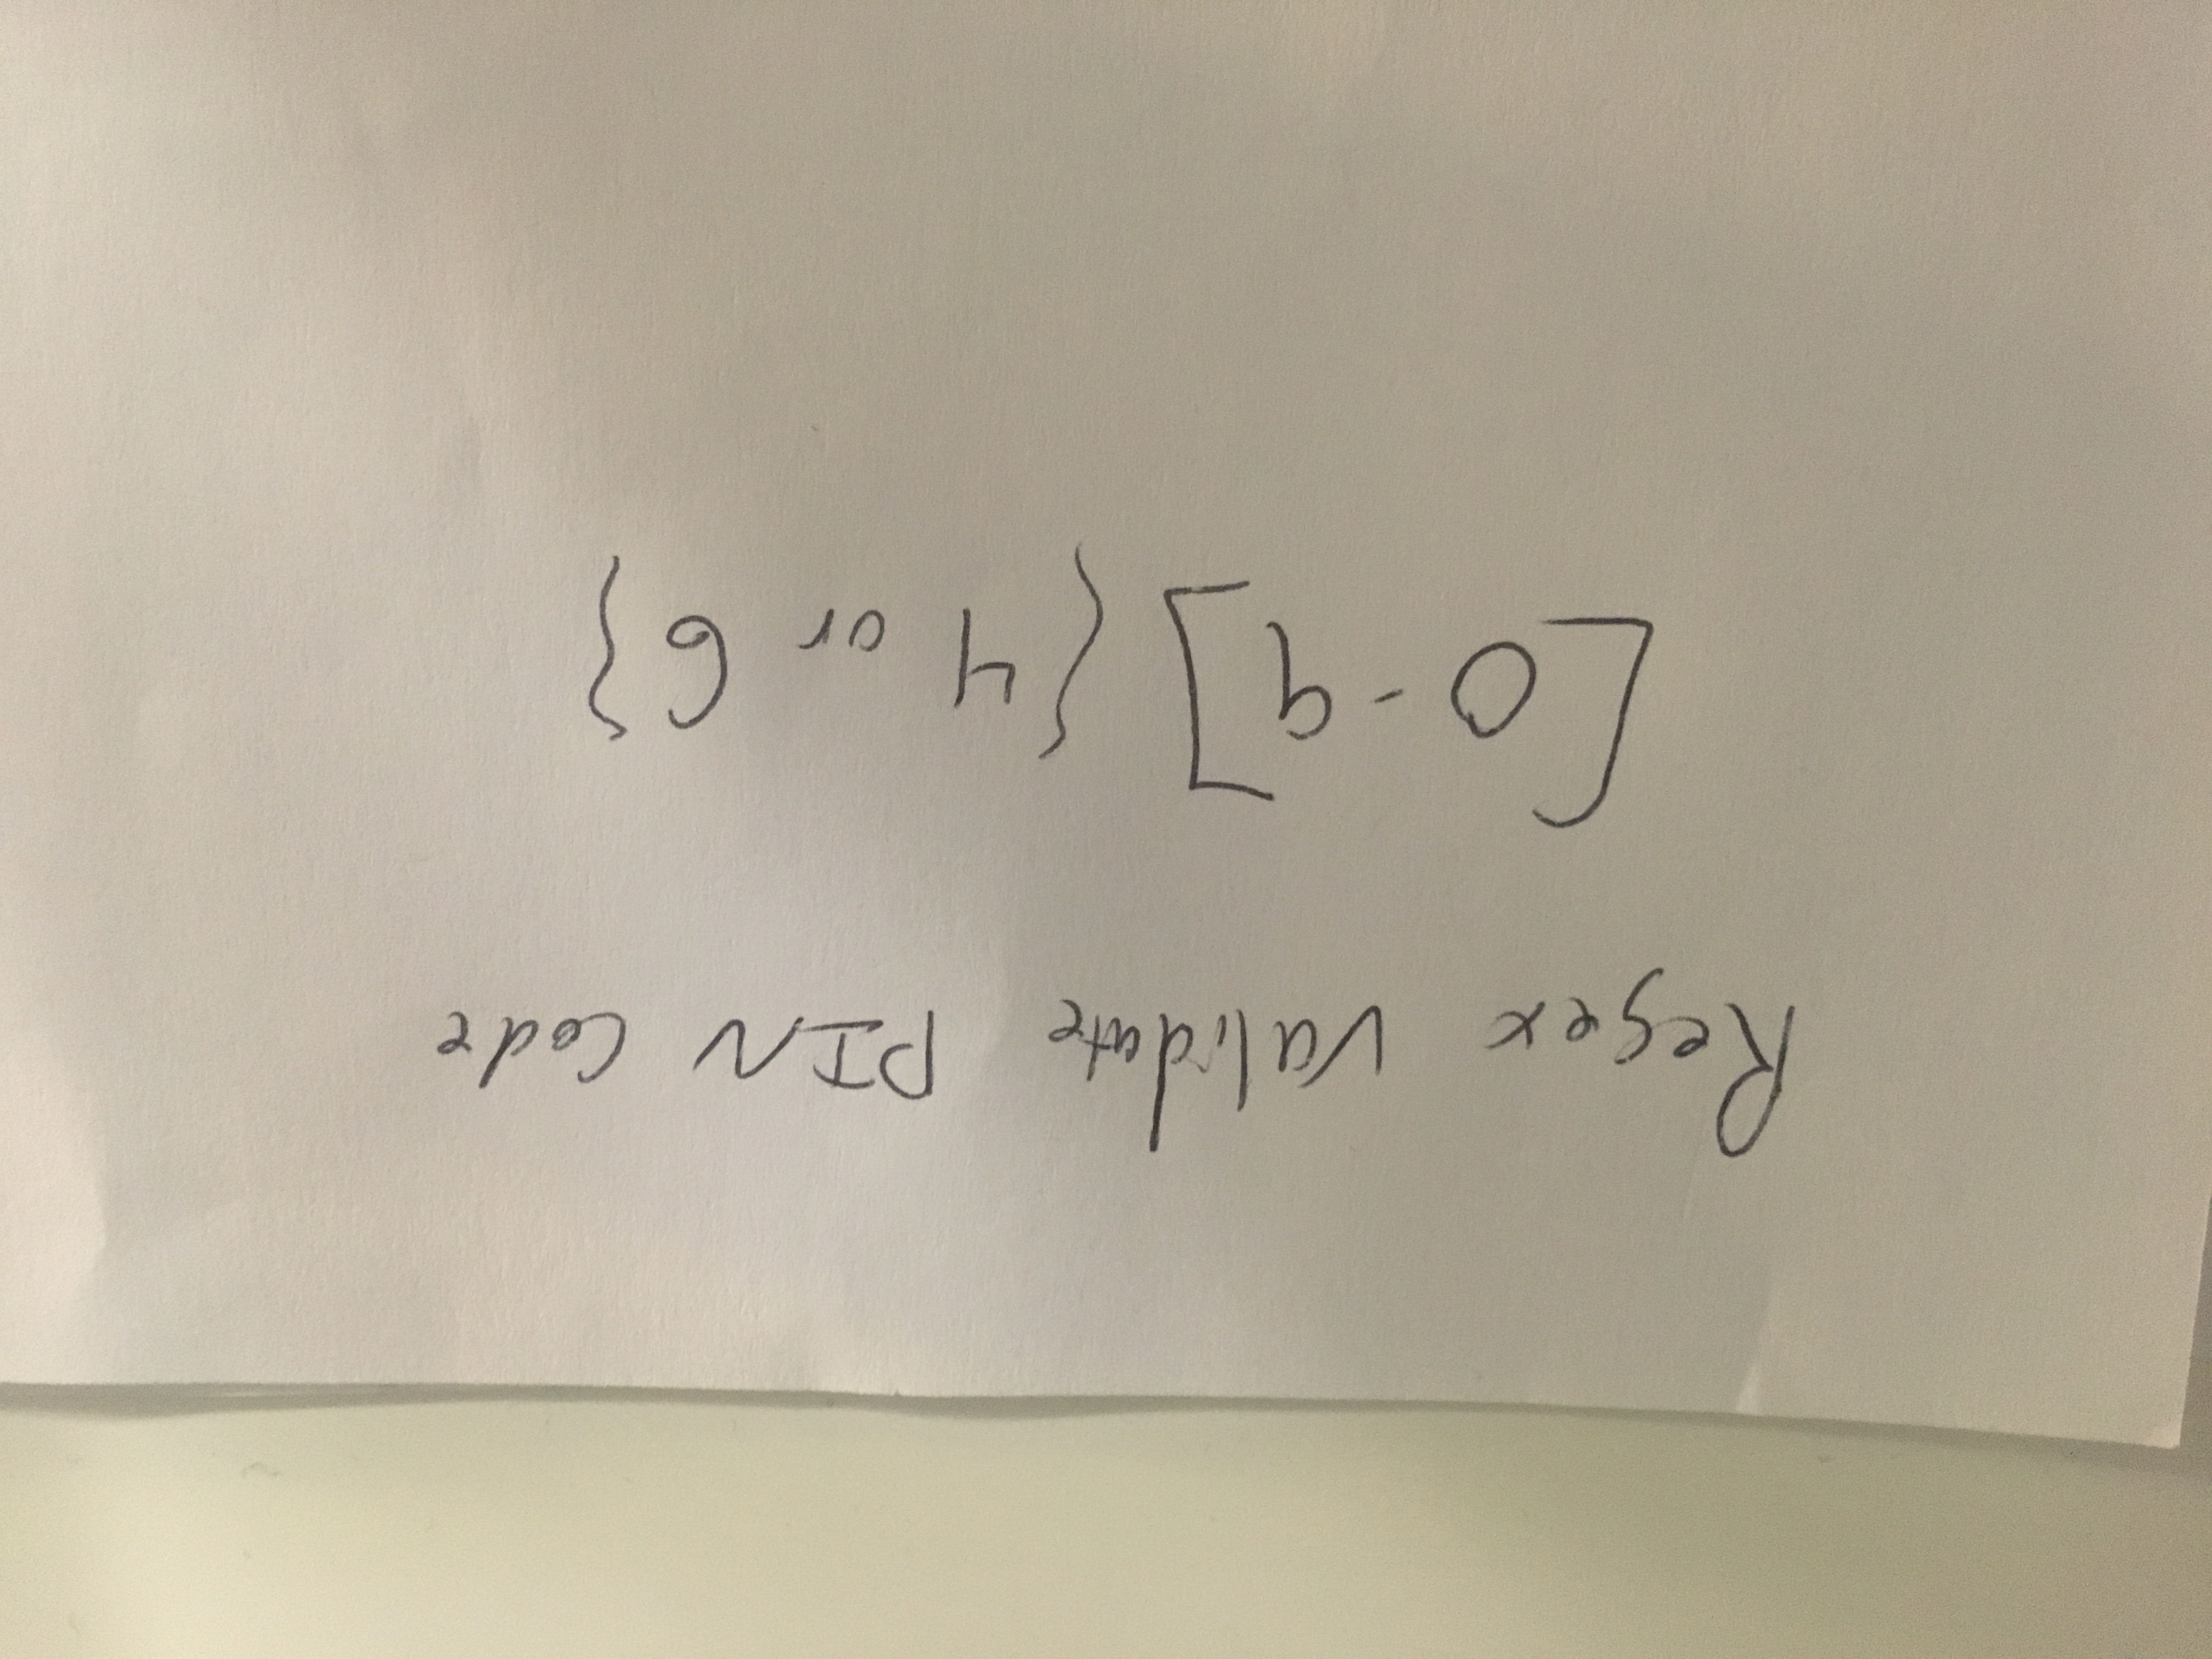 Regex validate PIN Code
[0-9]{4 or 6}